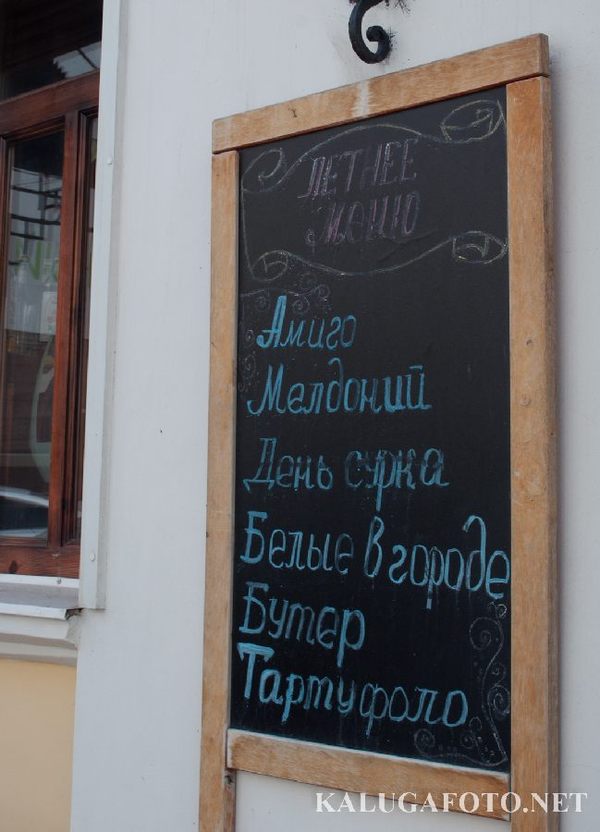 ЛЕТНЕЕ
МЕНЮ
Амиго
Мелдоний
День сурка
Белые в городе
Бутер
Тартуфоло
KALUGAFOTO.NET